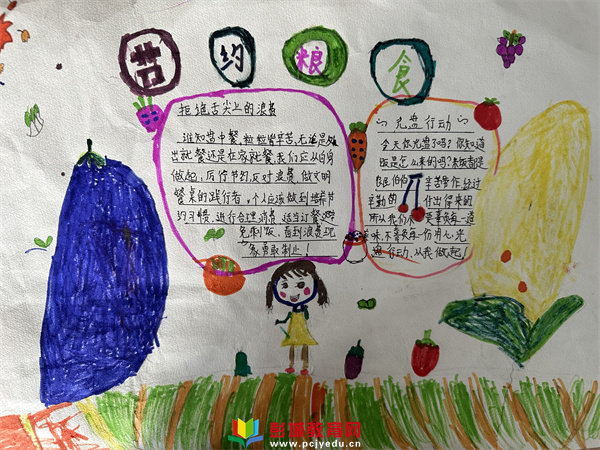 节约粮食
拒绝舌尖上的浪费
谁知盘中餐,粒粒皆辛苦,无论是外
出就餐还是在家就餐,我们应从自身
做起,厉行节约,反对浪费,做文明
餐桌的践行者,个人应该做到培养节
约习惯,进行合理消费,适当订餐,避
免剩饭,看到浪费现
象勇敢制止!
光盘行动
今天你光盘了吗?你知道
饭是怎么来的吗?米饭都是
农民伯伯 辛苦劳作,经过
辛勤的 付出得来的
所以我们不 要辜负每一道
美味,不辜负每一份用心,光
盘行动,从我做起!
彭城教育网
www.pcjyedu.cn